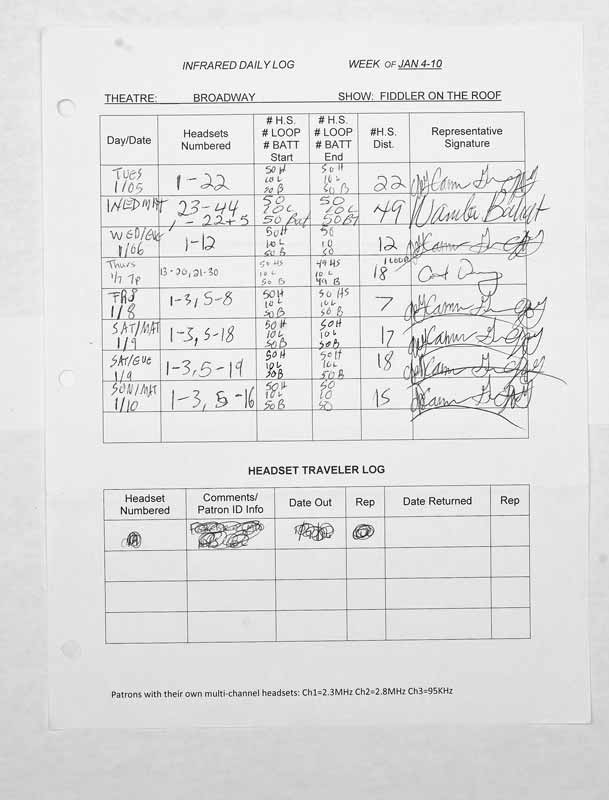 INFRARED DAILY LOG WEEK OF JAN 4-10
THEATRE: BROADWAY SHOW: FIDDLER ON THE ROOF
Day/Date Headsets Numbered # H.S. # LOOP # BATT Start # H.S. # LOOP # BATT End #H.S. Dist. Representative Signature
TUES 1/05 1-22 50H 10L 50B 50H 10L 50B 22
WED MAT 23-44, 1-22+5 50 10L 50 Bat 50 10L 50Bt 49
WED/EVE 1/06 1-12 50H 10L 50B 50 10 50 12
Thurs 1/7 7p 13-20, 21-30 50HS 10L 50B 49HS 10L 49B 1 LOOP 18
FRI 1/8 1-3, 5-8 50H 10L 50B 50HS 10L 50B 7
SAT/MAT 1/9 1-3, 5-18 50H 10L 50B 50H 10L 50B 17
SAT/EVE 1/9 1-3, 5-19 50H 10L 50B 50H 10L 50B 18
SUN/MAT 1/10 1-3, 5-16 50H 10L 50B 50 10 50 15
HEADSET TRAVELER LOG
Headset Numbered Comments/ Patron ID Info Date Out Rep Date Returned Rep
Patrons with their own multi-channel headsets: Ch1=2.3MHz Ch2=2.8MHz Ch3=95KHz